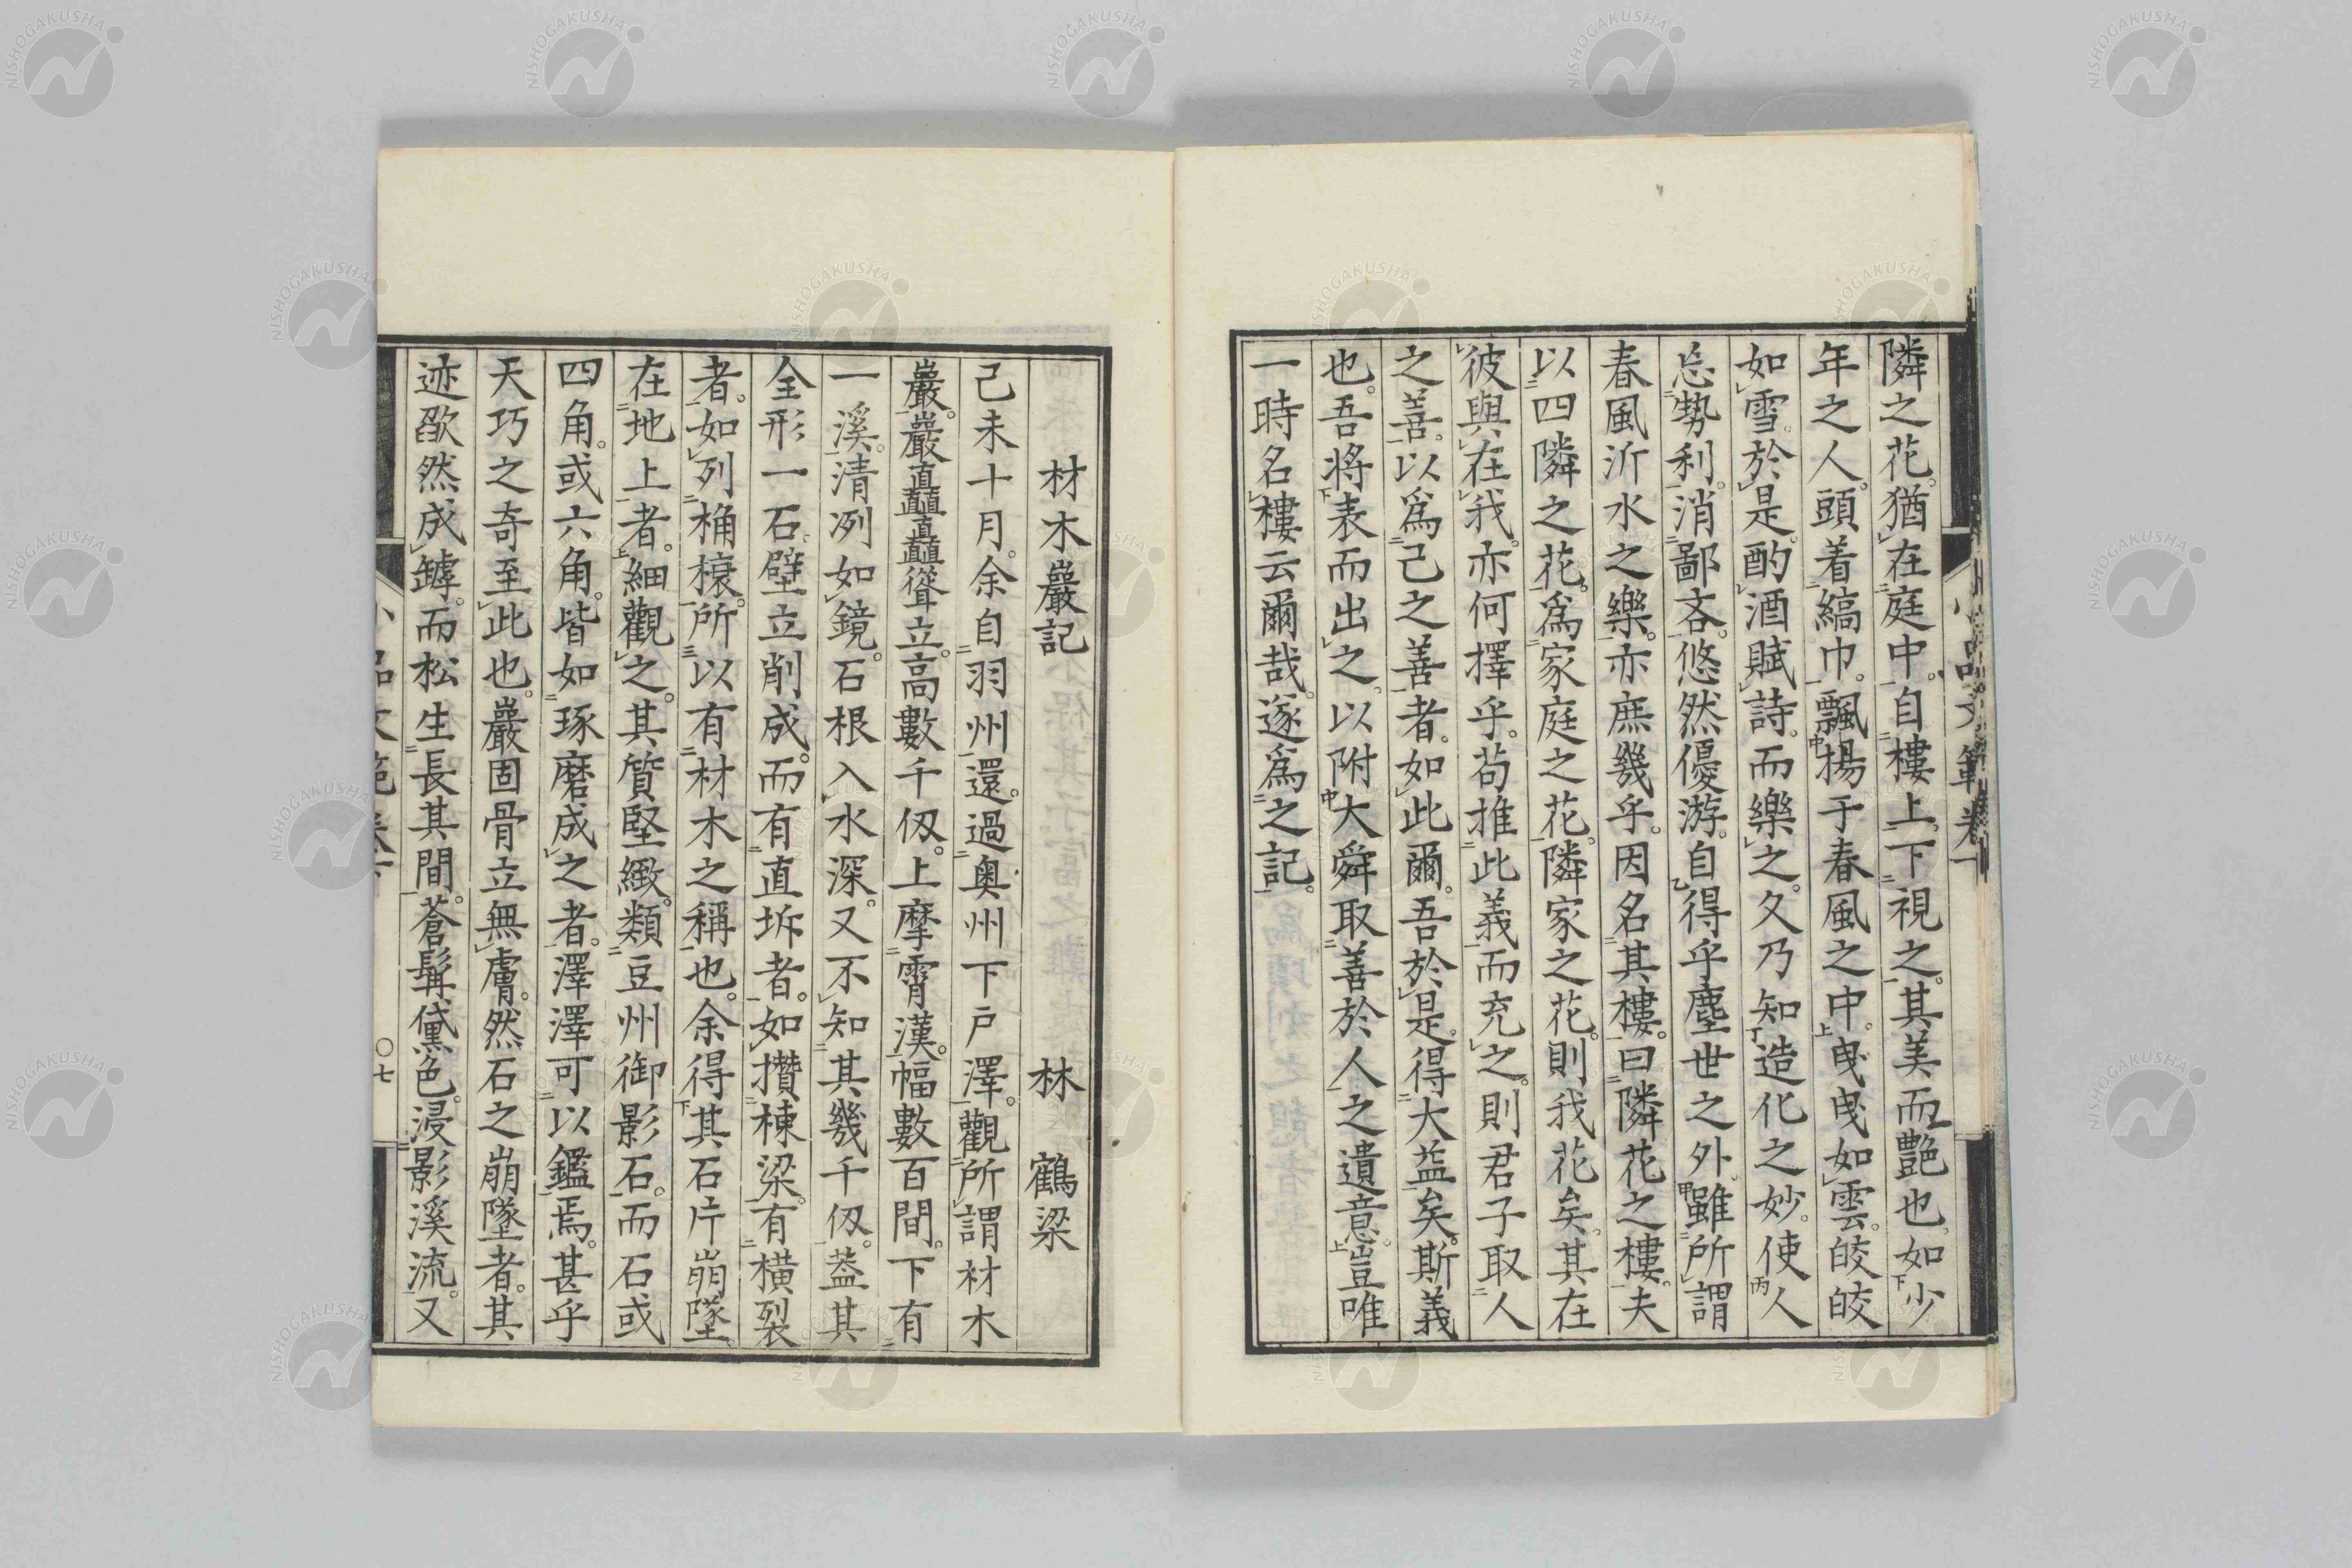 隣之花。猶在庭中。自樓上下視之。其美而艷也。如少
年之人。頭着縞巾。飄揚于春風之中。曳曳如雲。皎皎
如雪。於是酌酒賦詩。而樂之。久乃知造化之妙。使人
忘勢利。消鄙吝。悠然優游。自得乎塵世之外。雖所謂
春風沂水之樂。亦庶幾乎。因名其樓。曰隣花之樓。夫
以四隣之花。爲家庭之花。隣家之花。則我花矣。其在
彼與在我。亦何擇乎。苟推此義而充之。則君子取人
之善。以爲己之善者。如此爾。吾於是。得大益矣。斯義
也。吾將表而出之。以附大舜取善於人之遺意。豈唯
一時名樓云爾哉。遂爲之記。
材木巖記 林 鶴梁
己未十月。余自羽州還。過奧州下戸澤。觀所謂材木
巖。巖直矗矗聳立。高數千仭。上摩霄漢。幅數百間。下有
一溪。清冽如鏡。石根入水深。又不知其幾千仭。葢其
全形一石壁立削成。而有直坼者。如攢棟梁。有橫裂
者。如列桷榱。所以有材木之稱也。余得其石片崩墜
在地上者。細觀之。其質堅緻。類豆州御影石。而石或
四角。或六角。皆如琢磨成之者。澤澤可以鑑焉。甚乎
天巧之奇至此也。巖固骨立無膚。然石之崩墜者。其
迹欿然成罅。而松生長其間。蒼髯黛色。浸影溪流。又
〇七
NISHOGAKUSHA